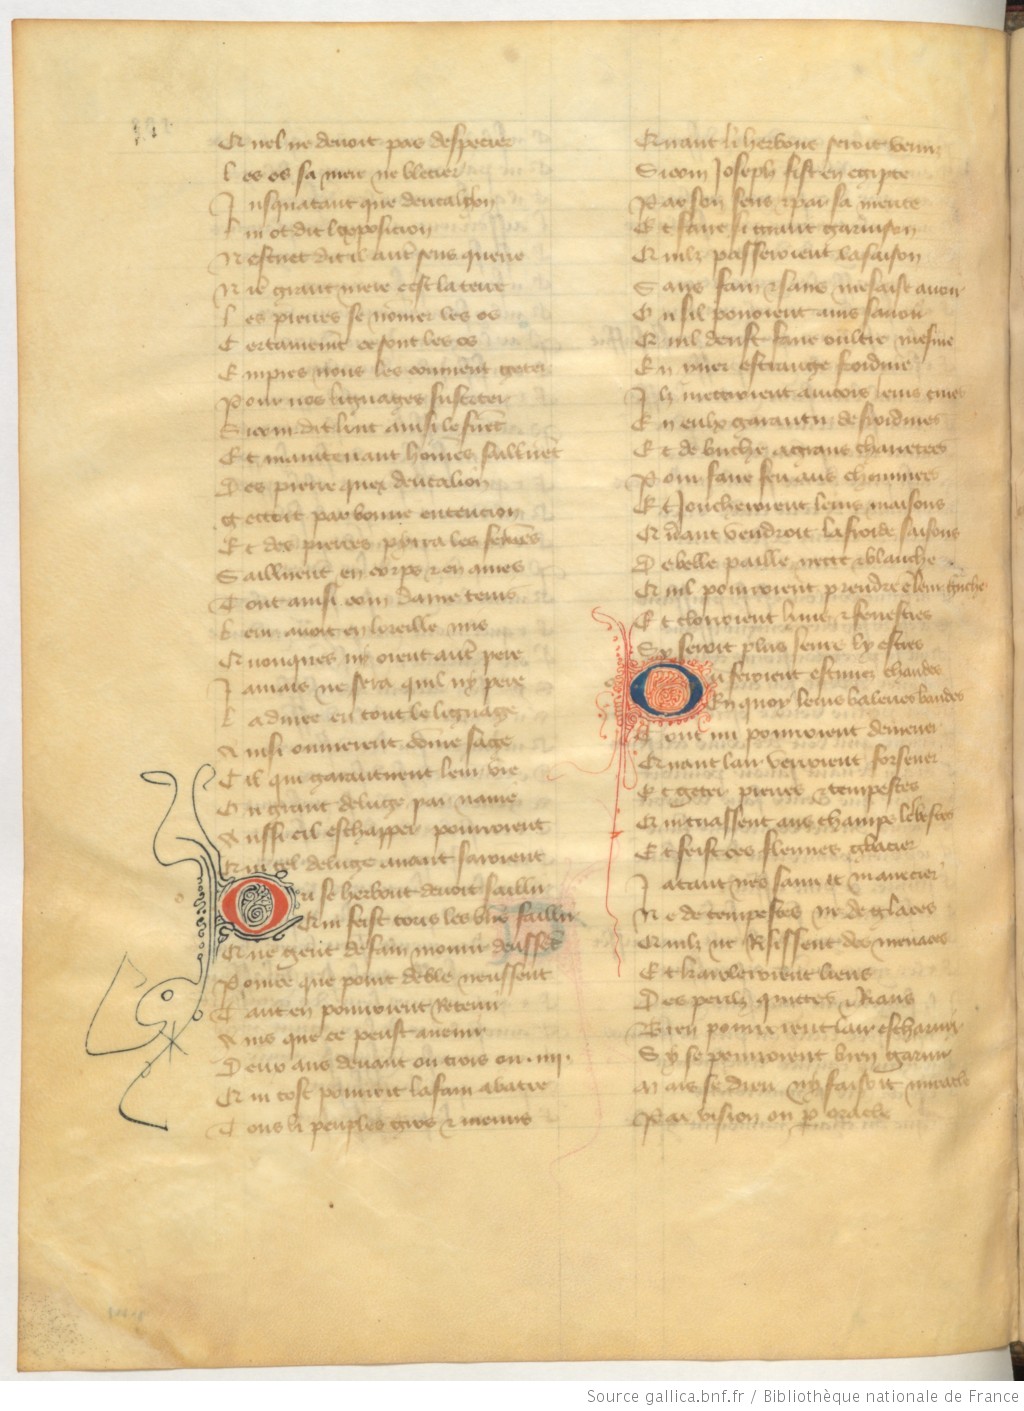 Qu nel ne devoit pas despecier
Les os sa mere ne blecier
Jusquatant que deucalyon
Lui ot dit lexposicion
N estuet dit il autre sens querre
N re grant mere cest la terre
Les pierres se nomer les os
Certainement ce sont les os
Empres nous les convient geter
Pour nos lignages susciter
Sicom dit lont ainsi le firent
Et maintenant homes saillirent
Des pierres que deucalion
gectoit par bonne entencion
Et des pierres pirra les femes
Saillirent en corps & en ames
Tout ainsi com dame temis
Leur avoit en loreille mis
Qu nonques ny quirent autre pere
Jamais ne sera quil ny pere
La durte en tout le lignage
Ainsi ouvrerent come sage
Cil qui garantirent leur vie
Du grant deluge par navie
Aussi cil eschapper pourroient
Qui tel deluge avant saroient
Ou se herbout devoit saillir
Qui feist touz les biens faillir
Que gent de fain mourir deussent
Pource que point de ble neussent
Tant en pourroient retenir
Ains que ce peust avenir
Deux ans devant ou trois ou .iiii.
Qui tost pourroit la fain abatre
Tous li peuples gros & menus
Quant li herbous seroit venus
Sicom Joseph fist en egipte
Par son sens & par sa merite
Et faire si grant garnison
Quilz passeroient la saison
Sans fain & sans mesaise avoir
Ou sil pouoient ains savoir
Quil deust faire oultre mesure
En yver estrange froidure
Ilz mettroient aincois leurs cures
En eulx garantir de froidures
Et de buche a grans charretes
Pour faire feu aus cheminees
Et Joncheroient leurs maisons
Quant vendroit la froide saisons
De belle paille nette & blanche
Quil pourroient prendre en leur granche
Et clorroient huis & fenestres
Sy seroit plus seurs ly estres
Ou feroient estuves chaudes
En quoy leurs baleries baudes
Tout nu pourroient demener
Quant lair verroient forsener
Et geter pierres & tempestes
Qui tuassent aus champs les bestes
Et feist ces fleuves glacier
Ja tant nes saroit manecier
Ne de tempestes ne de glaces
Quilz ne Rissent des menaces
Et karoleroient liens
Des perilz quictes & Rians
Bien pourroient lair escharnir
Sy se pourroient bien garnir
Mais se dieu ny faisoit miracle
Par vision ou par oracle
Source gallica.bnf.fr / Bibliothèque nationale de France